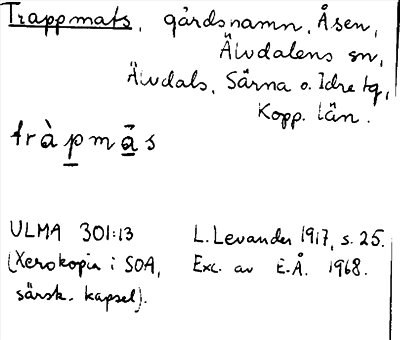 Trappmats, gårdsnamn, Åsen,
Älvdalens sn,
Älvdals, Särna o. Idre tg,
Kopp. län.
tràpmā̀s
ULMA 301:13 L. Levander 1917, s. 25.
(Xerokopia i SOA, Exc. av E.Å. 1968.
särsk. kapsel).